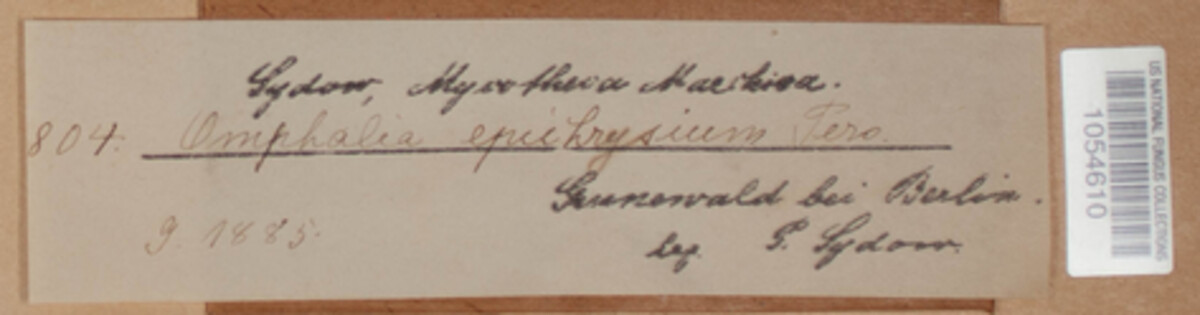 Sydow, Mycotheca Marchica.
804. Omphalia epichrysium Pers.
Grunewald bei Berlin.
9. 1885.
leg. P. Sydow.
US NATIONAL FUNGUS COLLECTIONS
1054610